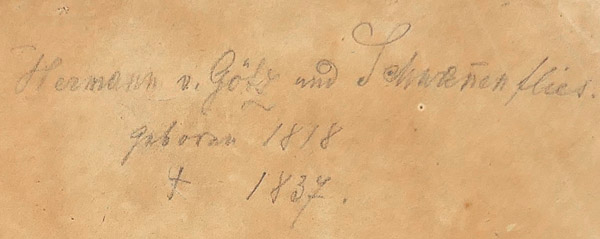 Hermann v. Götz und Schwanenflies.
geboren 1818
† 1837.